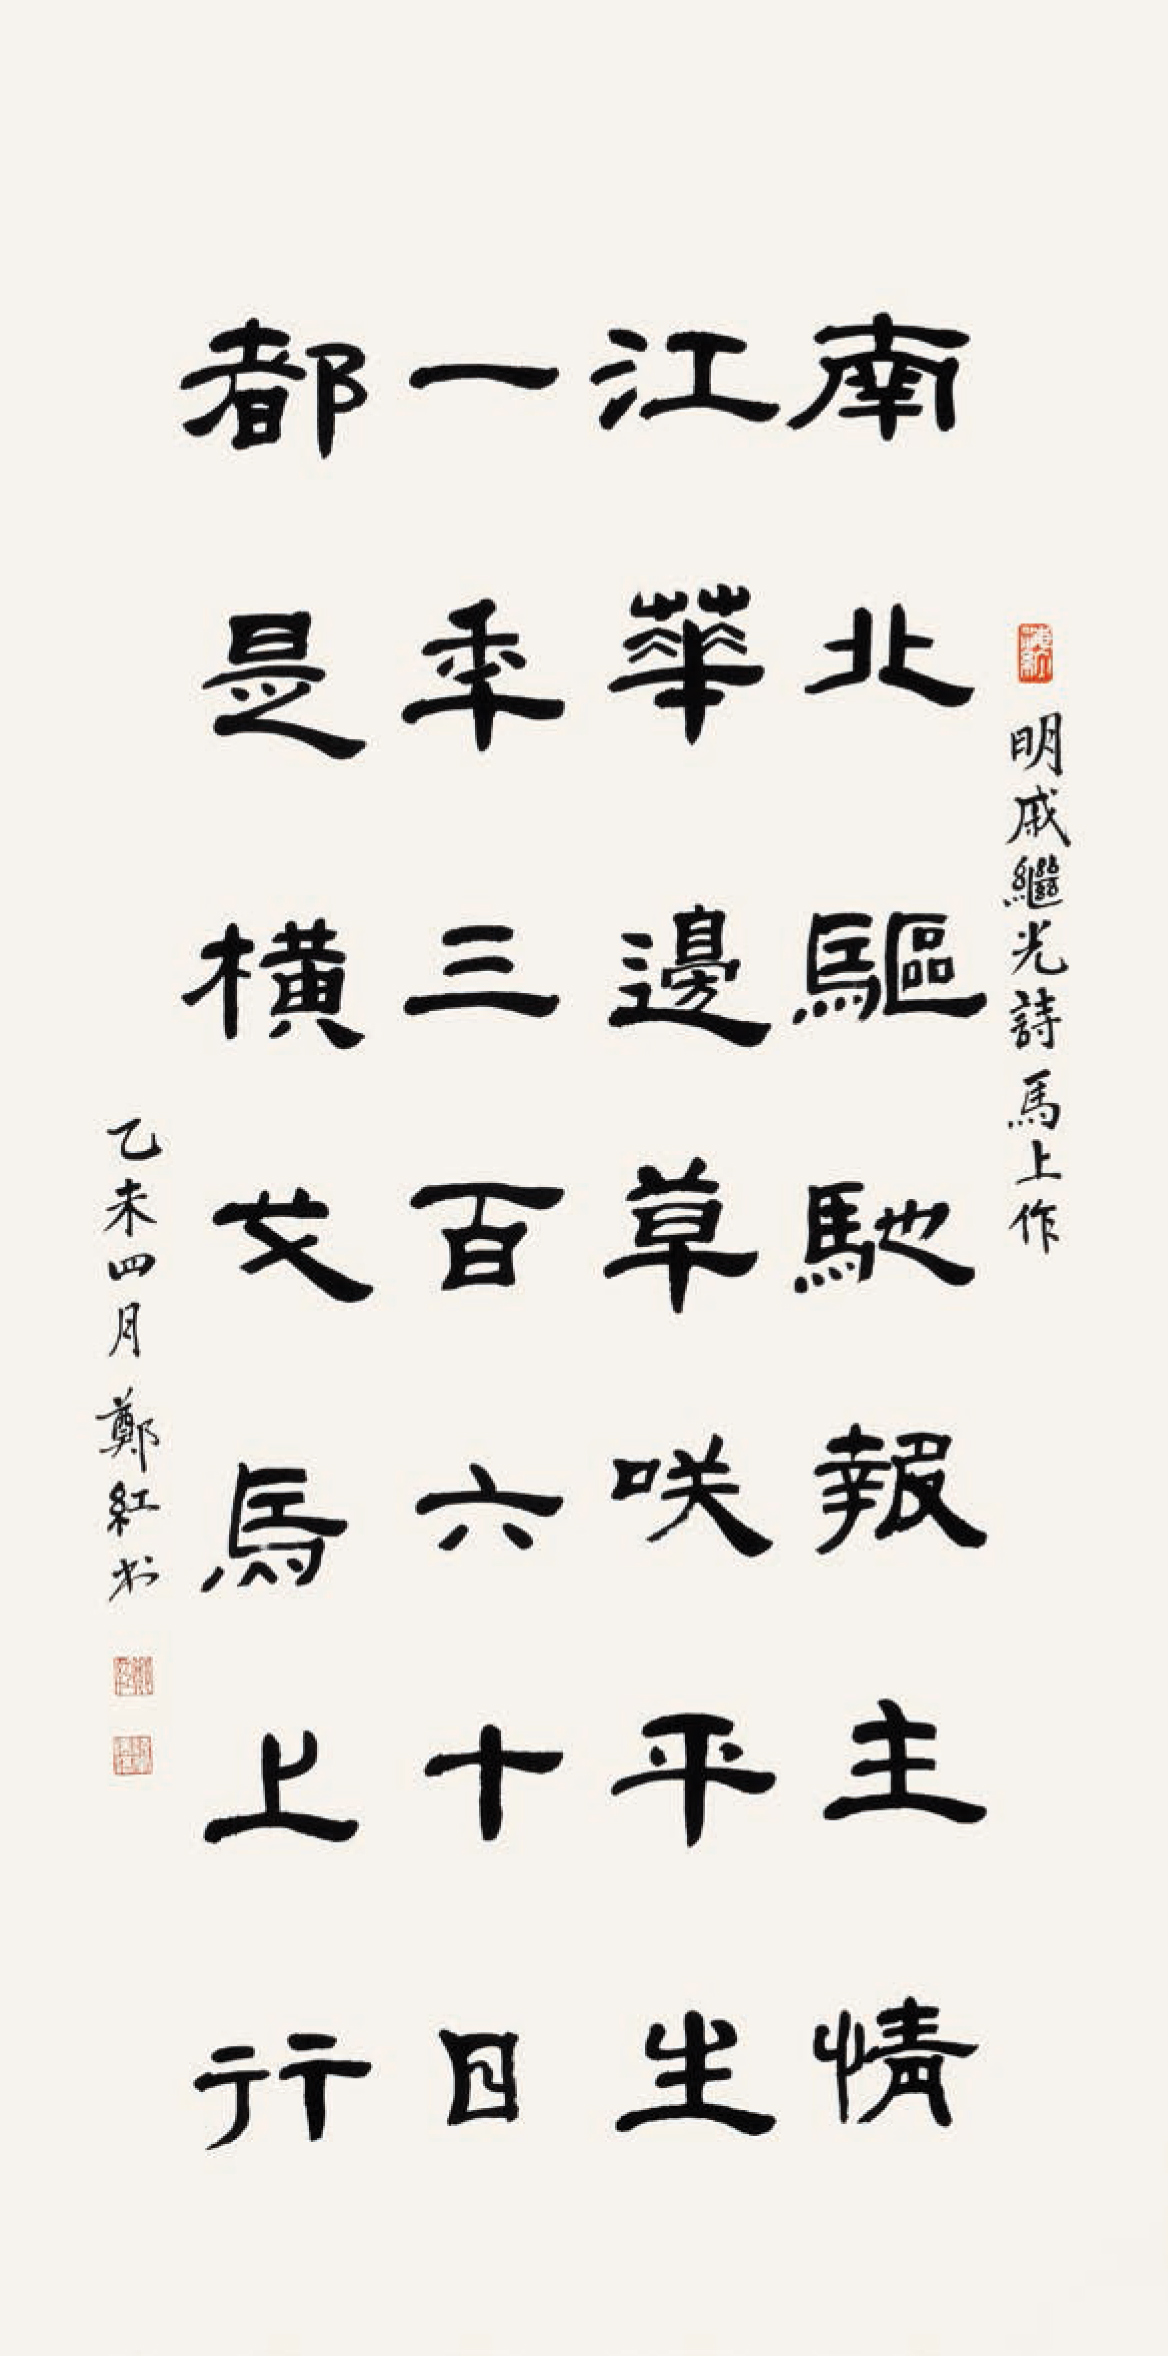 明戚繼光詩馬上作
南北驅馳報主情
江華邊草咲平生
一年三百六十日
都是横戈馬上行
乙未四月鄭紅书